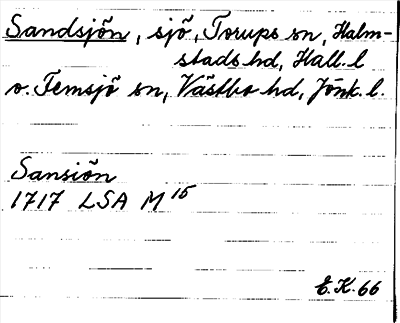 Sandsjön, sjö, Torups sn, Halm-
stads hd, Hall. l
o. Femsjö sn, Västbo hd, Jönk. l.
Sansiön
1717 LSA M 15
E.K. 66